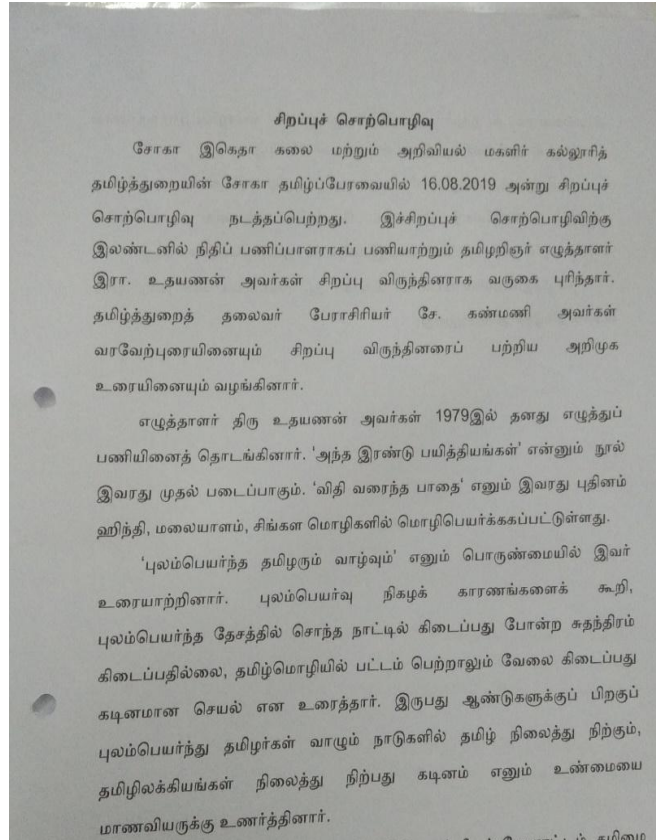 சிறப்புச் சொற்பொழிவு
சோகா இகெதா கலை மற்றும் அறிவியல் மகளிர் கல்லூரித்
தமிழ்த்துறையின் சோகா தமிழ்ப்பேரவையில் 16.08.2019 அன்று சிறப்புச்
சொற்பொழிவு நடத்தப்பெற்றது. இச்சிறப்புச் சொற்பொழிவிற்கு
இலண்டனில் நிதிப் பணிப்பாளராகப் பணியாற்றும் தமிழறிஞர் எழுத்தாளர்
இரா. உதயணன் அவர்கள் சிறப்பு விருந்தினராக வருகை புரிந்தார்.
தமிழ்த்துறைத் தலைவர் பேராசிரியர் சே. கண்மணி அவர்கள்
வரவேற்புரையினையும் சிறப்பு விருந்தினரைப் பற்றிய அறிமுக
உரையினையும் வழங்கினார்.
எழுத்தாளர் திரு உதயணன் அவர்கள் 1979இல் தனது எழுத்துப்
பணியினைத் தொடங்கினார். 'அந்த இரண்டு பயித்தியங்கள்' என்னும் நூல்
இவரது முதல் படைப்பாகும். 'விதி வரைந்த பாதை' எனும் இவரது புதினம்
ஹிந்தி, மலையாளம், சிங்கள மொழிகளில் மொழிபெயர்க்ககப்பட்டுள்ளது.
'புலம்பெயர்ந்த தமிழரும் வாழ்வும்' எனும் பொருண்மையில் இவர்
உரையாற்றினார். புலம்பெயர்வு நிகழக் காரணங்களைக் கூறி,
புலம்பெயர்ந்த தேசத்தில் சொந்த நாட்டில் கிடைப்பது போன்ற சுதந்திரம்
கிடைப்பதில்லை, தமிழ்மொழியில் பட்டம் பெற்றாலும் வேலை கிடைப்பது
கடினமான செயல் என உரைத்தார். இருபது ஆண்டுகளுக்குப் பிறகுப்
புலம்பெயர்ந்து தமிழர்கள் வாழும் நாடுகளில் தமிழ் நிலைத்து நிற்கும்,
தமிழிலக்கியங்கள் நிலைத்து நிற்பது கடினம் எனும் உண்மையை
மாணவியருக்கு உணர்த்தினார்.
தமிழை